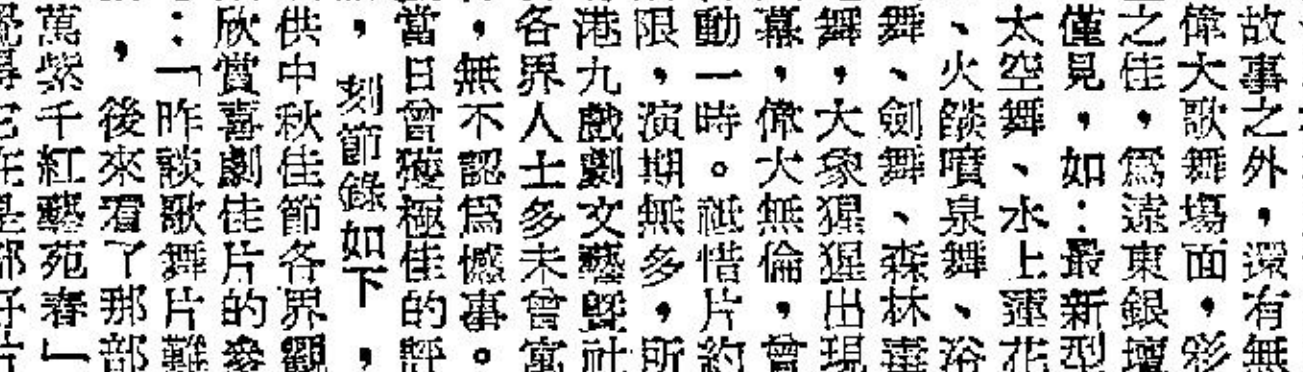 故事之外，還有無
偉大歌舞塲面，彩
之佳，爲遠東銀壇
僅見，如：最新型
太空舞、水上蓮花
、火燄噴泉舞、浴
舞、劍舞、森林
舞，大象猩猩出現
幕，偉大無倫，曾
動一時。祗惜片約
限，演期無多，所
港九戲劇文藝曁社
各界人士多未曾寓
，無不認爲憾事。
當日曾獲極佳的評
，刻節錄如下，
供中秋佳節各界觀
欣賞喜劇佳片的參
：「昨談歌舞片難
，後來看了那部
萬紫千紅藝苑春」